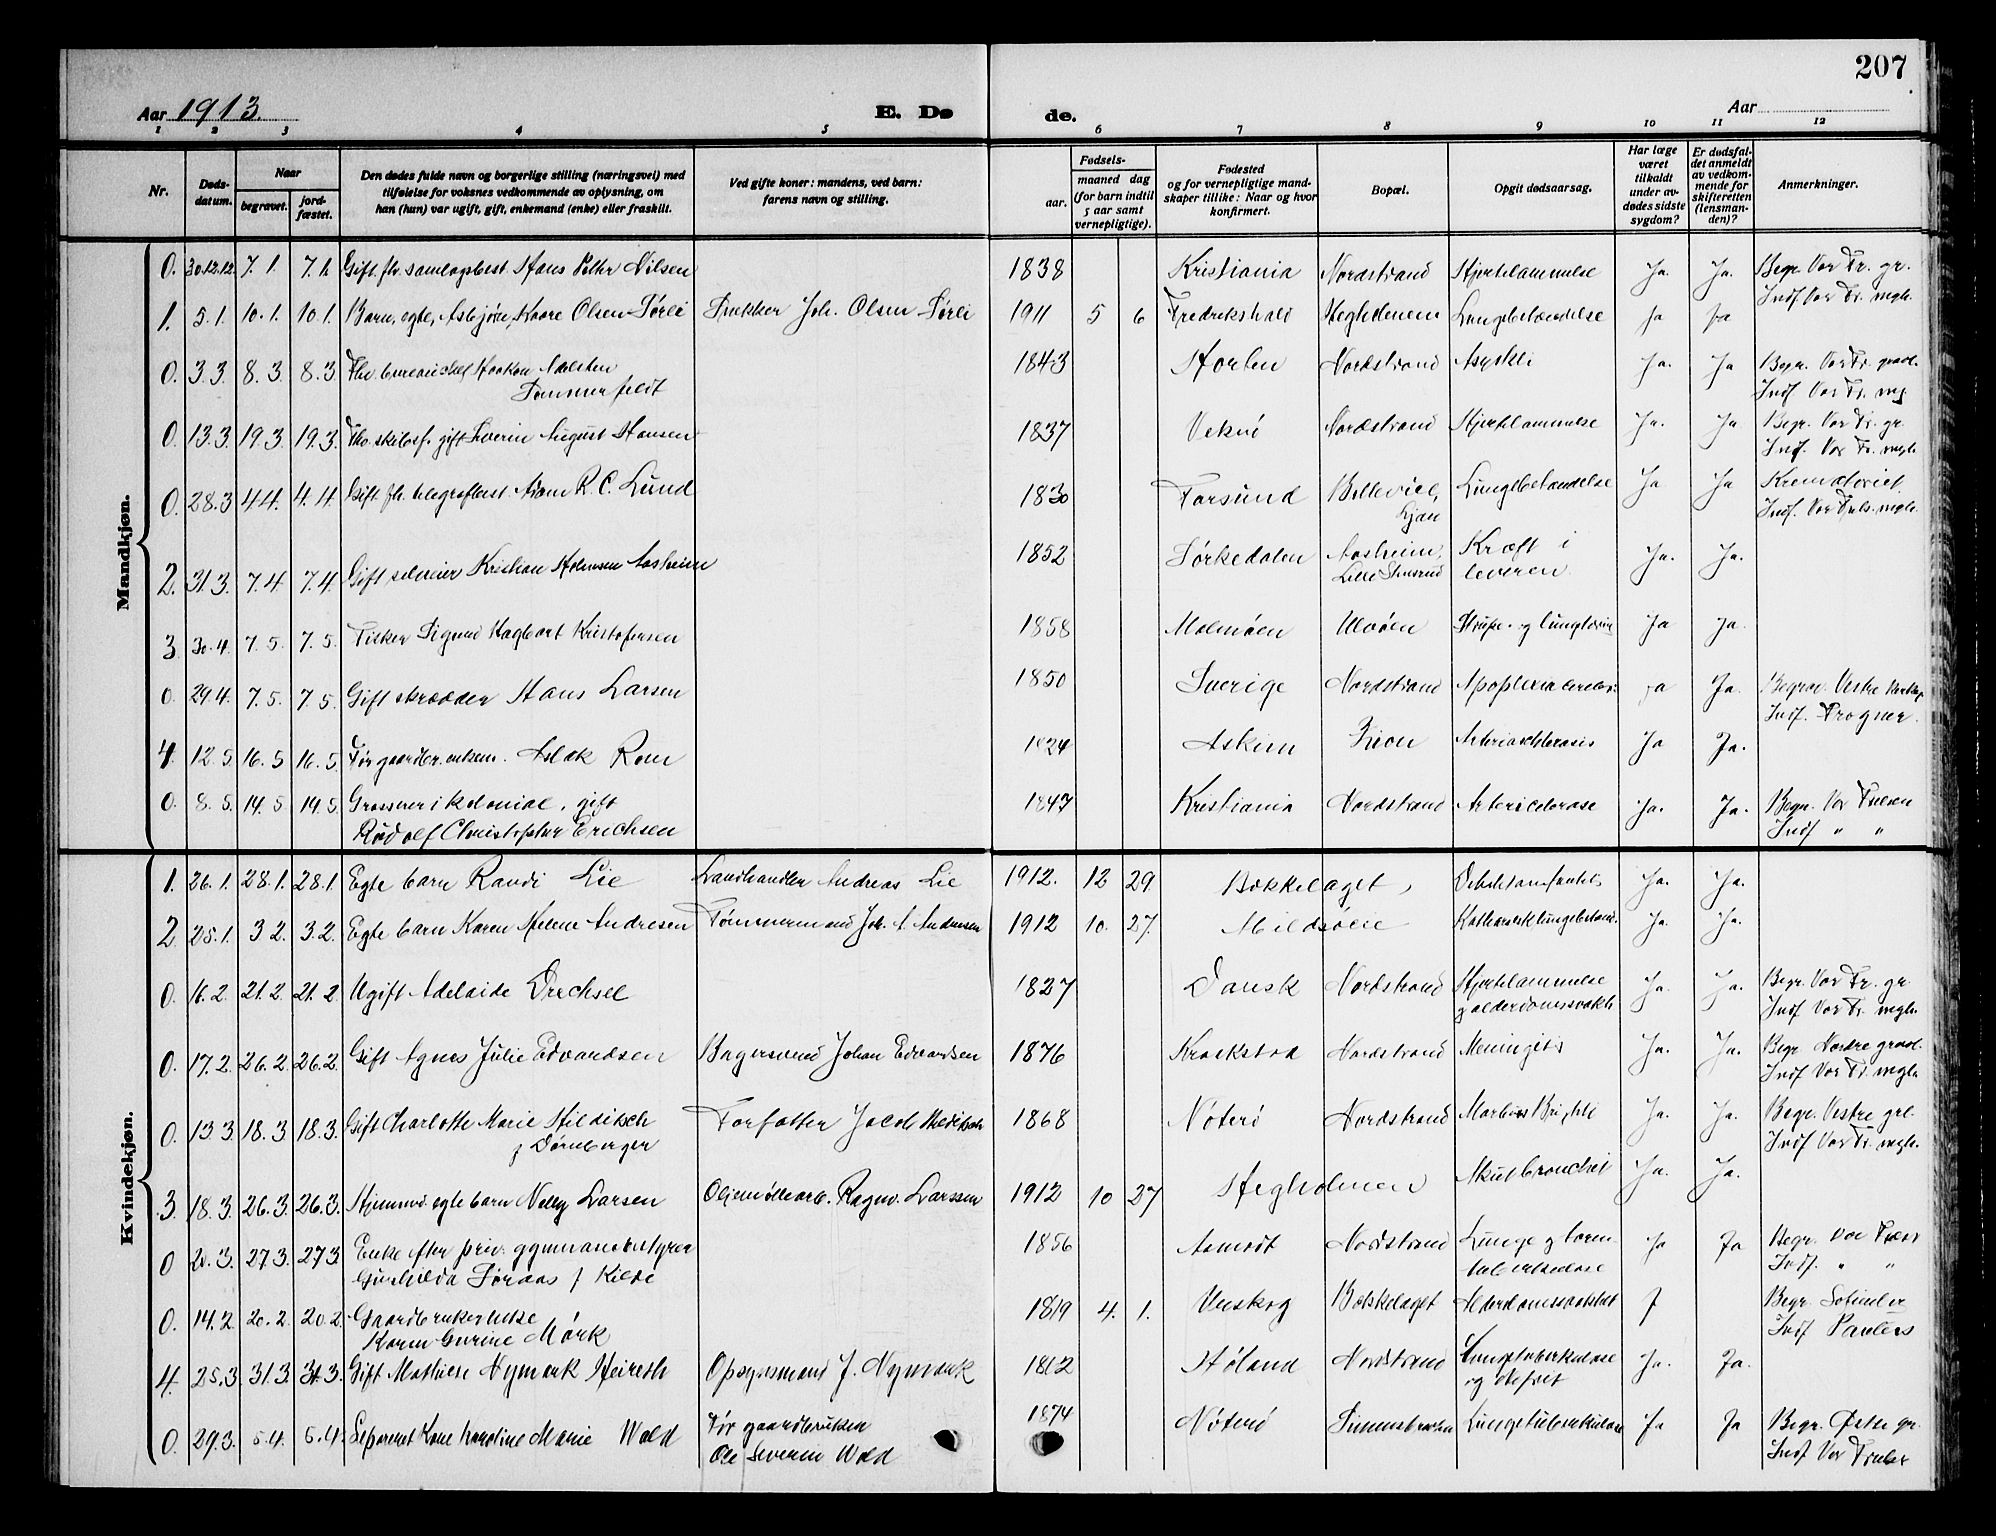 207
Aar 1913.
E. Døde.
Aar
1 2 3 4 5 6 7 8 9 10 11 12
Nr.
Døds-
datum.
Naar
begravet.
jord-
fæstet.
Den dødes fulde navn og borgerlige stilling (næringsvei) med
tilføielse for voksnes vedkommende av oplysning, om
han (hun) var ugift, gift, enkemand (enke) eller fraskilt.
Ved gifte koner: mandens, ved barn:
farens navn og stilling.
Fødsels-
aar.
maaned dag
(for barn indtil
5 aar samt
vernepligtige).
Fødested
og for vernepligtige mand-
skaper tillike: Naar og hvor
konfirmert.
Bopæl.
Opgit dødsaarsag.
Har læge
været
tilkaldt
under av-
dødes sidste
sygdom?
Er dødsfal-
det anmeldt
av vedkom-
mende for
skifteretten
(lensman-
den)?
Anmerkninger.
Mandkjøn.
0. 30.12.12 7.1. 7.1. Gift. fh. samlagsbest. Hans Petter Nilsen 1838 Kristiania Nordstrand Hjertelammelse Ja. Ja. Begr. Vor Fr. gr.
Indf. Vor Fr. mgh.
1. 5.1. 10.1. 10.1. Barn, egte, Asbjørn Kaare Olsen Sørli Joh. Olsen Sørli 1911 5 6 Fredrikshald Hegholmen Lungebetændelse Ja Ja
0. 3.3. 8.3. 8.3. Fhv. bureauchef Haakon Adelsten
Sommerfeldt 1843 Horten Nordstrand Ja. Ja Begr. Vor Fr. gravl.
Indf. Vor Fr. mg.
0. 13.3. 19.3. 19.3. gift Severin August Hansen 1837 Nordstrand Hjertelammelse Ja. Ja Begr. Vor Fr. gr.
Indf. Vor Fr. mgh.
0. 28.3 4.4. 4.4. Gift fh. telegrafbest. Adam R. C. Lund 1830 Farsund Bellevue,
Ljan Lungebetændelse Ja Ja Krematoriet.
Indf. Vor Frels. mgh.
2. 31.3. 7.4 7.4. Gift selveier Kristian Halvorsen Aasheim 1852 Sørkedalen Aasheim,
Lille Stensrud Kræft i
leveren. Ja. Ja.
3. 30.4. 7.5. 7.5. Fisker Sigurd Hagbart Kristofersen 1858 Malmøen Ulvøen Strupe- og lungetub. Ja Ja.
0. 29.4. 7.5. 7.5. Gift skrædder Hans Larsen 1850 Sverige Nordstrand Apoplexia cerebri Ja Ja. Begrav. Vestre
Indf. Frogner.
4. 12.5. 16.5 16.5. Før gaardbr. enkem. Aslak Rom 1824 Askim Zion Arteriosclerosis Ja Ja.
0. 8.5. 14.5 14.5. Grosserer i kolonial, gift
Rudolf Christopher Erichsen 1847 Kristiania Nordstrand Ja. Ja. Begr. Vor Frelsers
Indf. " "
Kvindekjøn.
1. 26.1. 28.1. 28.1. Egte barn Randi Lie Landhandler Andreas Lie 1912. 12 29. Bækkelaget, Ja. Ja.
2 25.1. 3.2. 3.2. Egte barn Karen Helene Andresen Tømmermand Joh. A. Andresen 1912 10. 27. Ja. Ja.
0. 16.2. 21.2. 21.2. Ugift Adelaide Drechsel 1827 Dansk Nordstrand Hjertelammelse
og alderdomssvakh. Ja. Ja. Begr. Vor Fr. gr.
Indf. Vor Fr. mgh.
0. 17.2. 26.2. 26.2. Gift Agnes Julie Edvardsen Bagersvend Johan Edvardsen 1876 Kraakstad Nordstrand Meningitis Ja. Ja. Begr. Nordre gravl.
Indf. Vor Fr. mgh.
0. 13.3 18.3 18.3. Gift Charlotte Marie Hilditsch
f Dørnberger Forfatter Jacob Hilditsch 1868 Nøterø Nordstrand Morbus Brightii Ja. Ja. Begr. Vestre grl.
Indf. Vor Fr. mgh.
3. 18.3. 26.3. 26.3. Hjemmed. egte barn Nelly Larsen Oljemøllearb. Ragnv. Larssen 1912 10 27 Hegholmen Akut bronchit Ja. Ja.
0 20.3. 27.3 27.3 Enke efter priv. gymnasiebestyrer
Gunhilda Søraas f Kilde 1856 Nordstrand Lunge og tarm-
tuberkulose Ja Ja Begr. Vor Frelsers
Indf. " "
0. 14.2 20.2. 20.2. Gaardbrukerenke
Karen Gurine Mørk 1819 4. 1. Enskog Bækkelaget Alderdomssvakhet J Begr.
Indf Paulus
4. 25.3. 31.3 31.3. Gift Mathilde Nymark Heireth Opsynsmand J. Nymark 1862 Høland Nordstrand Lungetuberkulose Ja. Ja.
0. 29.3. 5.4. 5.4. Separeret Kone Karoline Marie Wold Før gaardbruker
Ole Severin Wold 1874 Nøterø Simensbraaten Lungetuberkulose Ja Ja Begr. Østre gr.
Indf Vor Frelser